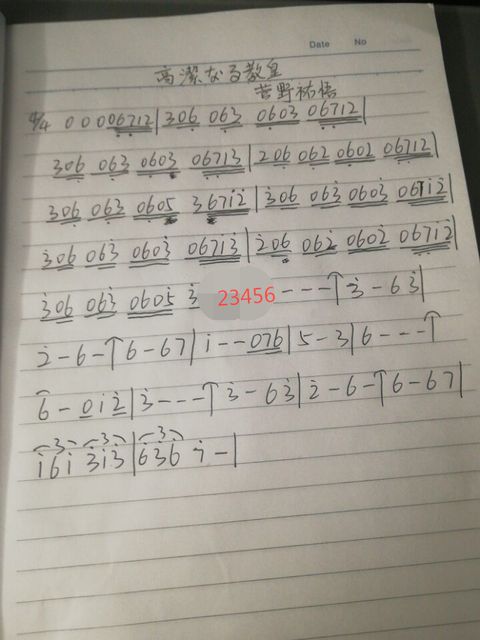 Date No
高潔なる教皇
菅野祐悟
4/4 0 0 0 06712|306 063 0603 06712|
306 063 0603 06713|206 062 0602 06712|
306 063 0605 36712|306 063 0603 06712|
306 063 0603 06713|206 062 0602 06712|
306 063 0605 3 23456 - - -↑3 - 63|
2 - 6 -↑6 - 67|1 - - 076|5 - 3|6 - - -↑
6 - 012|3 - - -↑3 - 63|2 - 6 -↑6 - 67|
3 3 3
161 313|636 1 -|